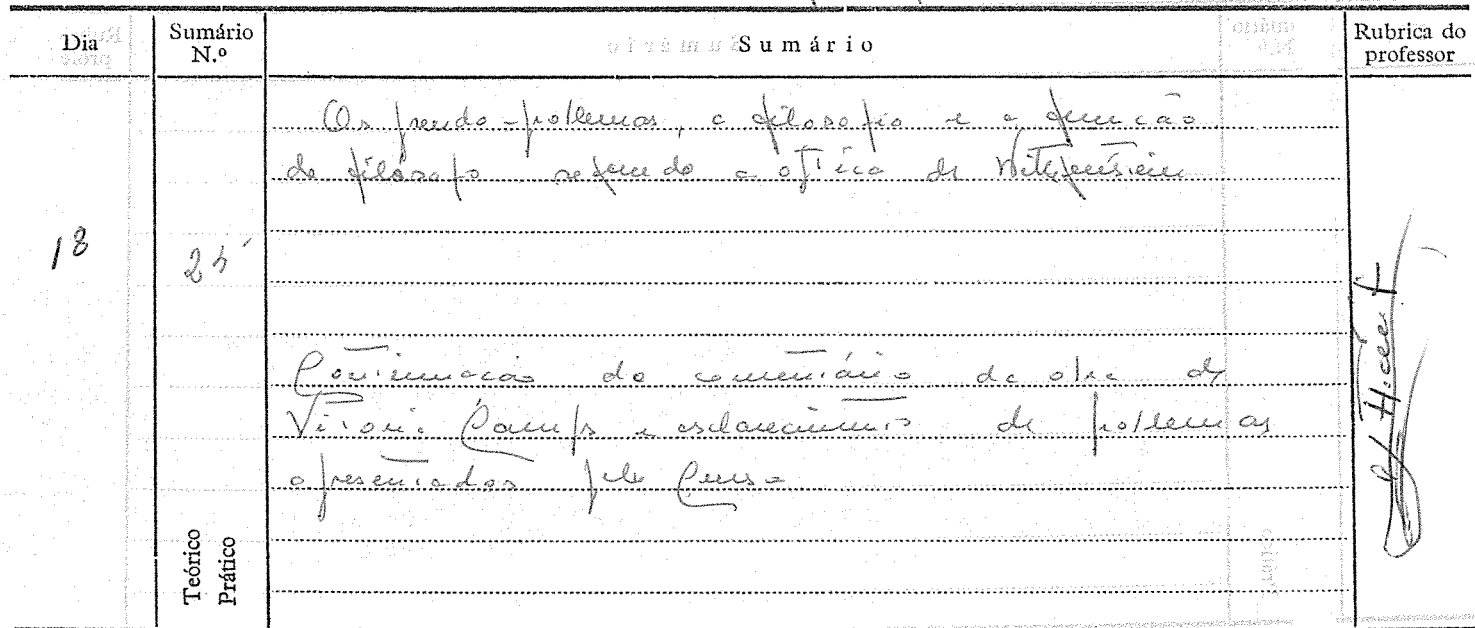 Dia
Sumário N.º
Sumário
Rubrica do professor
Os pseudo-problemas, a filosofia e a função
do filósofo segundo a óptica de Wittgenstein
18
25
Continuação do comentário da obra de
Victoria Camps e esclarecimentos de problemas
apresentados pelo Curso
Teórico
Prático